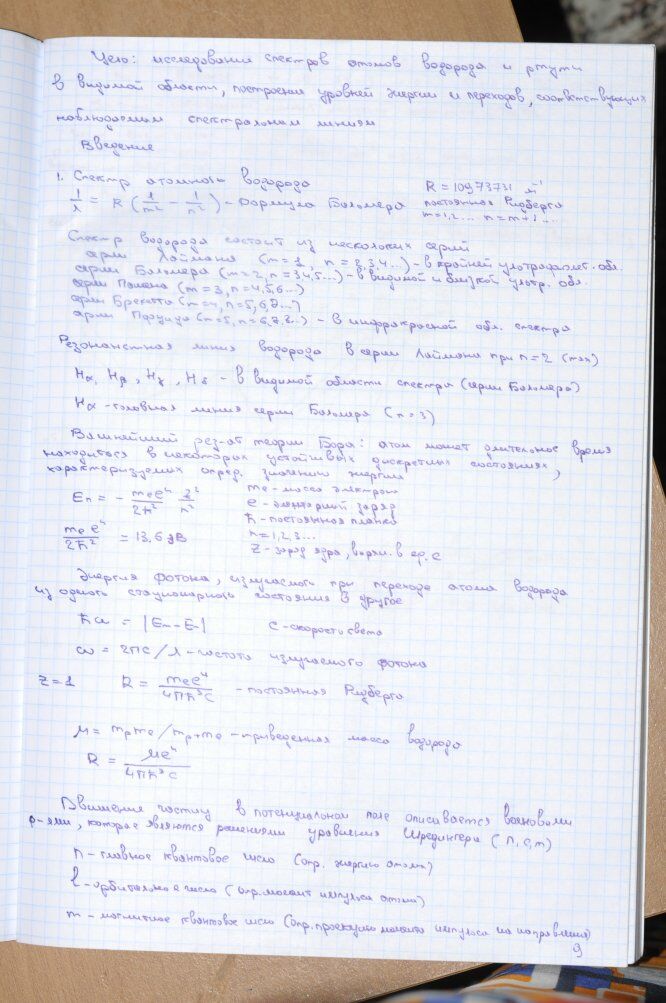 Цель: исследования спектров атомов водорода и ртути
в видимой области, построения уровней энергии и переходов, соответствующих
наблюдаемым спектральным линиям
Введение
1. Спектр атомного водорода
R = 10973731 м⁻¹
1/λ = R (1/m² − 1/n²) - формула Бальмера
постоянная Ридберга
m=1,2... n=m+1...
Спектр водорода состоит из нескольких серий
серии Лаймана (m=1, n=2,3,4...) - в крайней ультрафиолет. обл.
серии Бальмера (m=2, n=3,4,5...) - в видимой и близкой ультр. обл.
серии Пашена (m=3, n=4,5,6...)
серии Брекетта (m=4, n=5,6,7...)
серии Пфунда (m=5, n=6,7,8...) - в инфракрасной обл. спектра
Резонанстная линия водорода в серии Лаймана при n=2
Hα, Hβ, Hγ, Hδ - в видимой области спектра (серии Бальмера)
Hα - головная линия серии Бальмера (n=3)
Важнейший рез-ат теории Бора: атом может длительное время
находиться в некоторых устойчивых дискретных состояниях,
характеризуемых опред. значением энергии
Eₙ = − mₑe⁴/2ħ² z²/n²
mₑ - масса электрона
e - элентарний заряд
ħ - постоянная планка
n=1,2,3...
Z - заряд ядра, выраж. в ед. e
mₑe⁴/2ħ² = 13,6 эВ
Энергия фотона, излучаемого при переходе атома водорода
из одного стационарного состояния в другое
ħω = |Eₘ − Eₙ| c - скорость света
ω = 2πc/λ - частота излучаемого фотона
z=1 R = mₑe⁴/4πħ³c - постоянная Ридберга
μ = mₚmₑ/mₚ+mₑ - приведенная масса водорода
R = μe⁴/4πħ³c
Движения частиц в потенциальном поле описывается волновыми
ф-ями, которое являются решениями уравнения Шредингера (n, l, m)
n - главное квантовое число (опр. энергию атома)
l - орбитальное число (опр. момент импульса атома)
m - магнитное квантовое число (опр. проекцию момента импульса на направления)
9